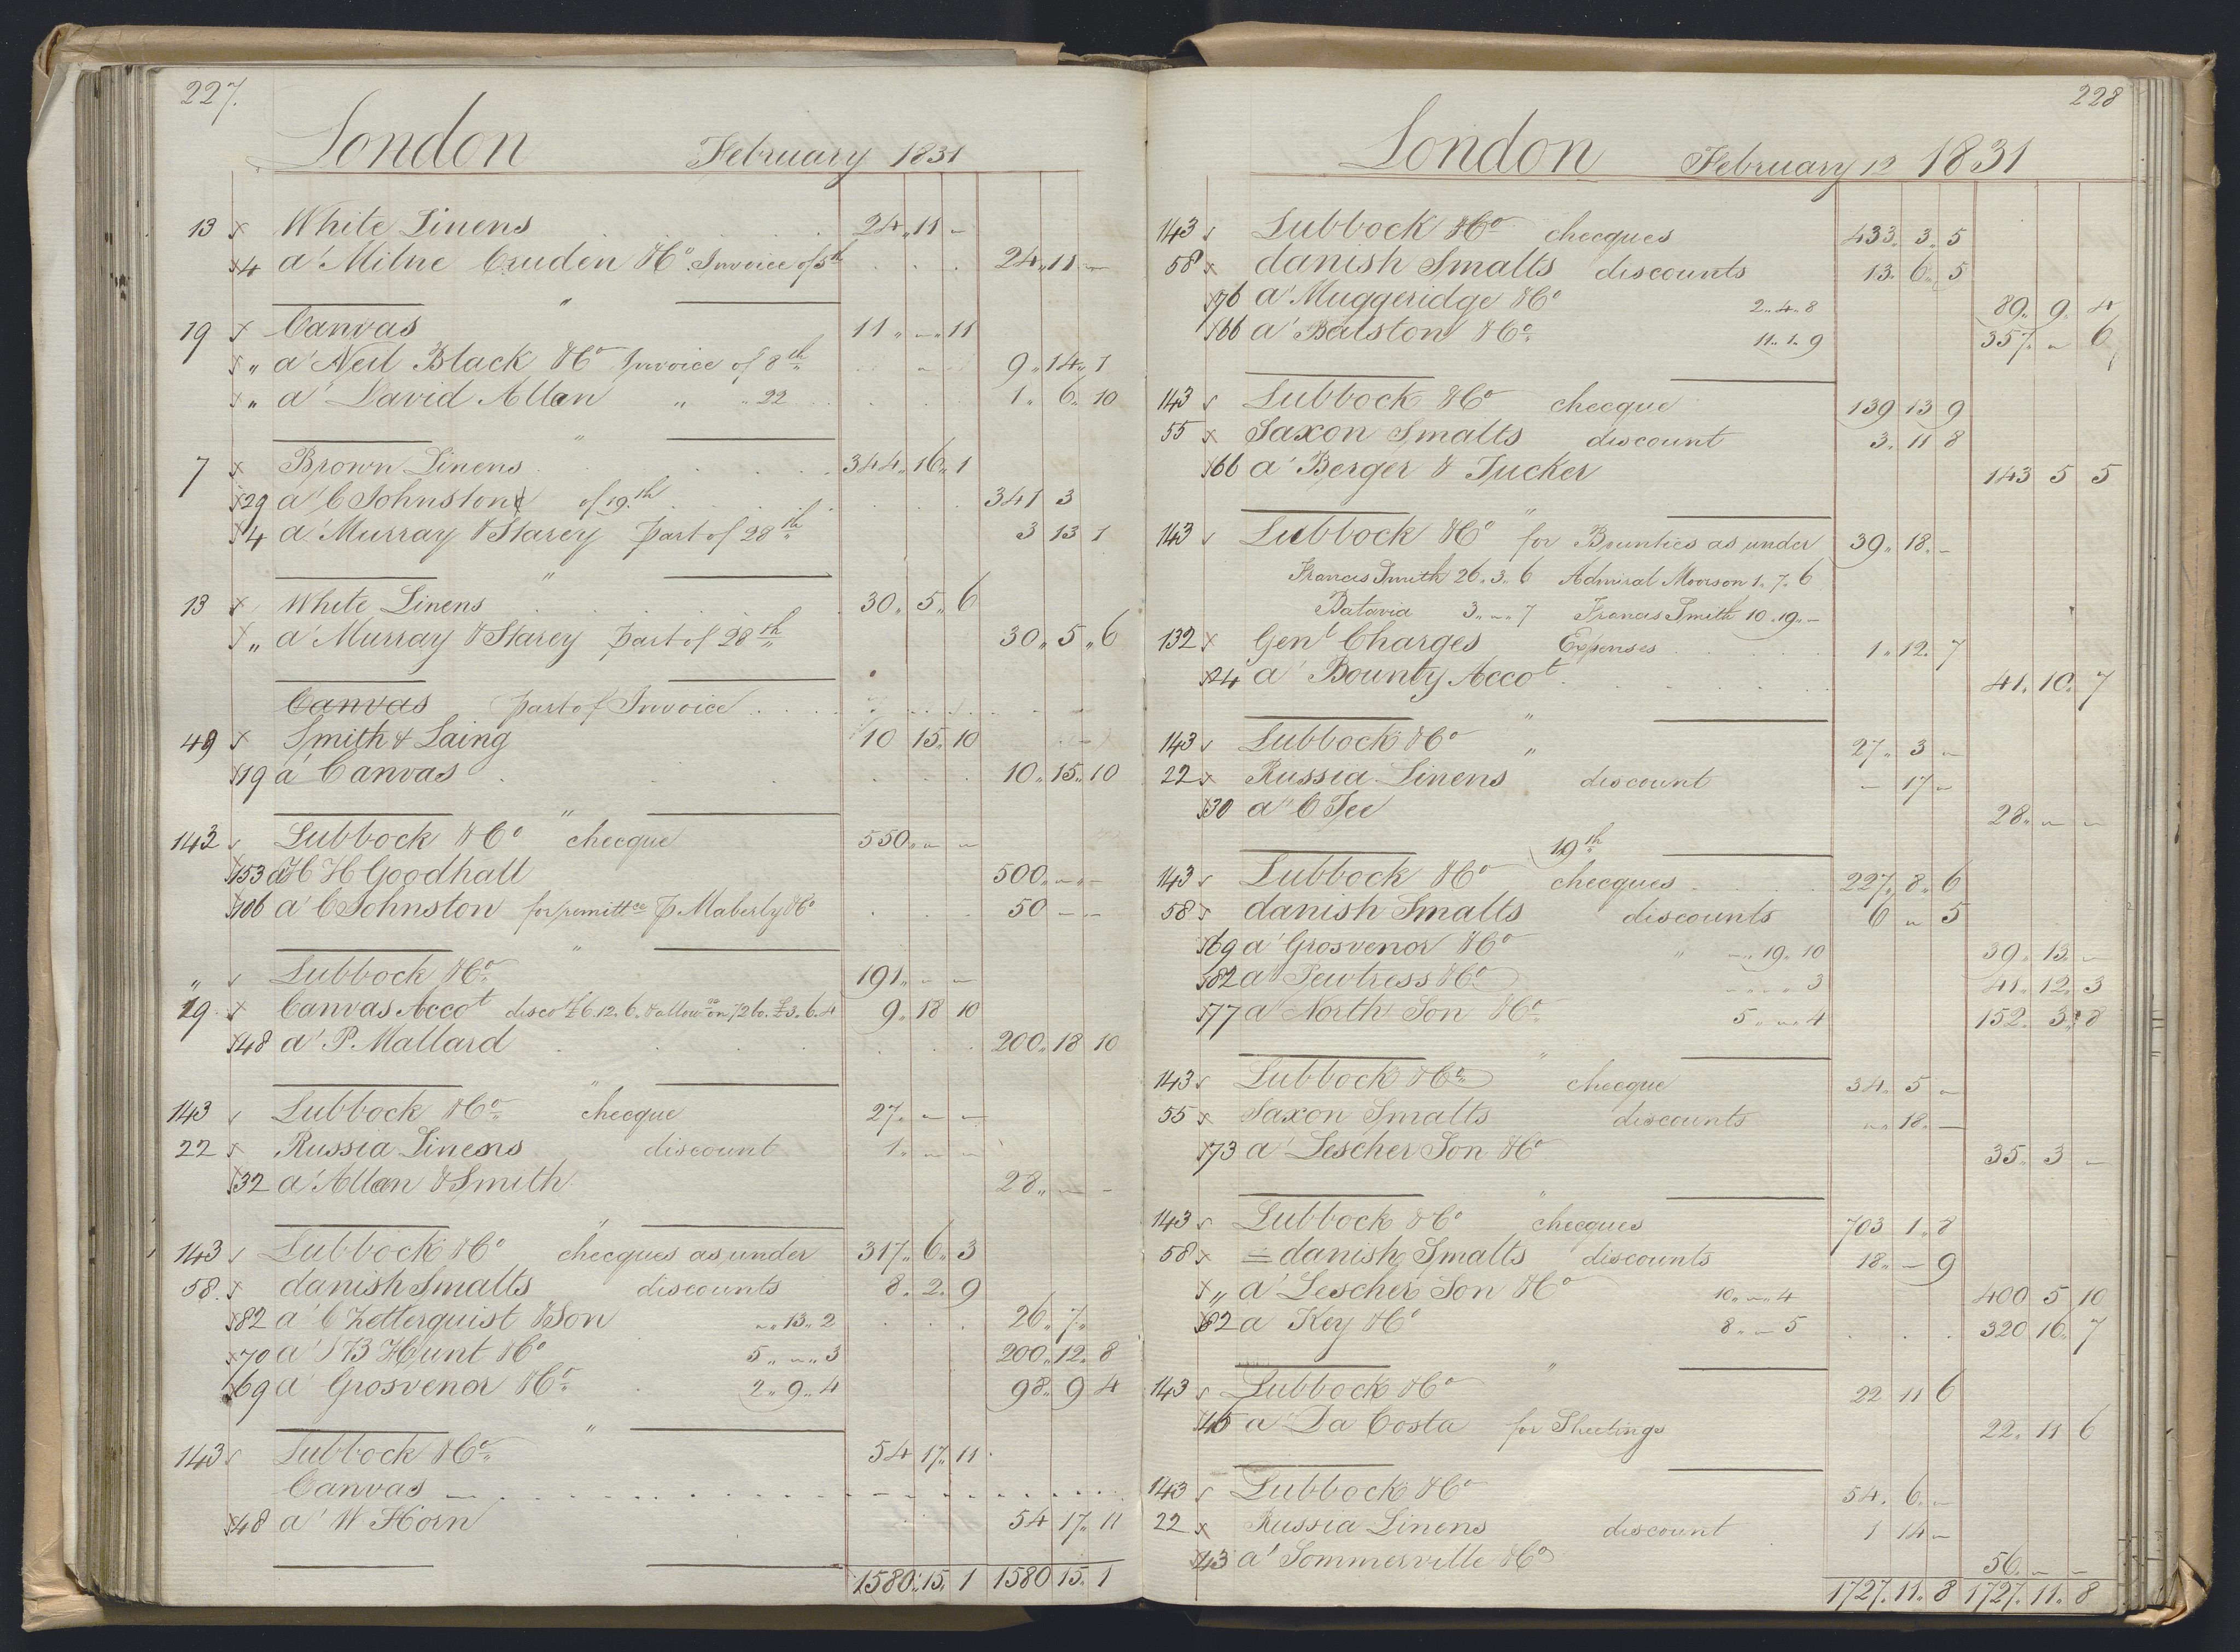 227.
London February 1831
13 x White Linens 24 " 11 -
x4 a' Milne Cruden & Co. Invoice of 5th 24 " 11 -
"
19 x Canvas 11 " - " 11
x " a' Neil Black & Co Invoice of 8th 9 " 14 " 1
x " a' David Allan " " 22 1 " 6 " 10
"
7 x Brown Linens 344 " 16 " 1
x29 a' C Johnston of 19th 341 3
x4 a' Murray & Starey part of 28th 3 13 1
"
13 x White Linens 30 " 5 " 6
x " a' Murray & Starey part of 28th 30 " 5 " 6
Canvas part of Invoice
49 x Smith & Laing 10 15 " 10
x19 a' Canvas 10 " 15 " 10
"
143 s Lubbock & Co checque 550 " - -
x153 a' H H Goodhall 500 " - " -
x106 a' C Johnston for remittce p Maberly & Co 50 - -
"
" s Lubbock & Co 191 " - -
19 x Canvas Accot discot £6.12.6. & allowce on 726. £3.6.4 9 " 18 10
x48 a' P. Mallard 200 " 18 10
"
143 s Lubbock & Co checque 27 " - -
22 x Russia Linens discount 1 " - -
x32 a' Allan & Smith 28 " - -
"
143 s Lubbock & Co checques as under 317 " 6 " 3
58 x danish Smalts discounts 8 . 2 " 9
x82 a' C Zetterquist & Son - " 13 " 2 26 " 7 "
x70 a' J B Hunt & Co 5 " - " 3 200 " 12 " 8
x69 a' Grosvenor & Co 2 " 9 " 4 98 " 9 4
"
143 s Lubbock & Co 54 17 " 11
Canvas
x48 a' W Horn 54 17 " 11
1580 " 15 " 1 1580 15 " 1
228
London February 12 1831
143 s Lubbock & Co checques 433 " 3 " 5
58 x danish Smalts discounts 13 " 6 " 5
x76 a' Muggeridge & Co 2 " 4 " 8 89 " 9 " 4
x66 a' Balston & Co 11 " 1 " 9 357 " - 6
143 s Lubbock & Co checque 139 13 9
55 x Saxon Smalts discount 3 " 11 8
x66 a' Berger & Tucker 143 5 5
"
143 s Lubbock & Co for Bounties as under 39 " 18 " -
Francis Smith 26 " 3 " 6 Admiral Moorson 1 " 7 " 6
Batavia 3 " - " 7 Francis Smith 10 " 19 " -
132 x Genl Charges Expenses 1 " 12 " 7
x24 a' Bounty Accot 41 " 10 " 7
"
143 s Lubbock & Co " 27 " 3 -
22 x Russia Linens discount - 17 -
x30 a' C Tee 28 " - -
19th
143 s Lubbock & Co checques 227 " 8 " 6
58 s danish Smalts discounts 6 - 5
x69 a' Grosvenor & Co " - " 19 " 10 39 " 13 " -
x82 a' Pewtress & Co - " - " 3 41 " 12 " 3
x77 a' North Son & Co 5 " - " 4 152 " 3 " 8
"
143 s Lubbock & Co checque 34 " 5 -
55 x Saxon Smalts discounts - " 18 " -
x73 a' Lescher Son & Co 35 " 3 -
"
143 s Lubbock & Co checques 703 1 " 8
58 x = danish Smalts discounts 18 " - 9
x " a' Lescher Son & Co 10 " - " 4 400 5 10
x82 a' Key & Co 8 " - 5 320 16 " 7
"
143 s Lubbock & Co 22 11 6
x45 a' Da Costa for Sheetings 22 " 11 6
143 s Lubbock & Co 54 " 6 " -
22 x Russia Linens discount 1 14 -
x43 a' Sommerville & Co 56 " - -
1727 " 11 " 8 1727 " 11 " 8